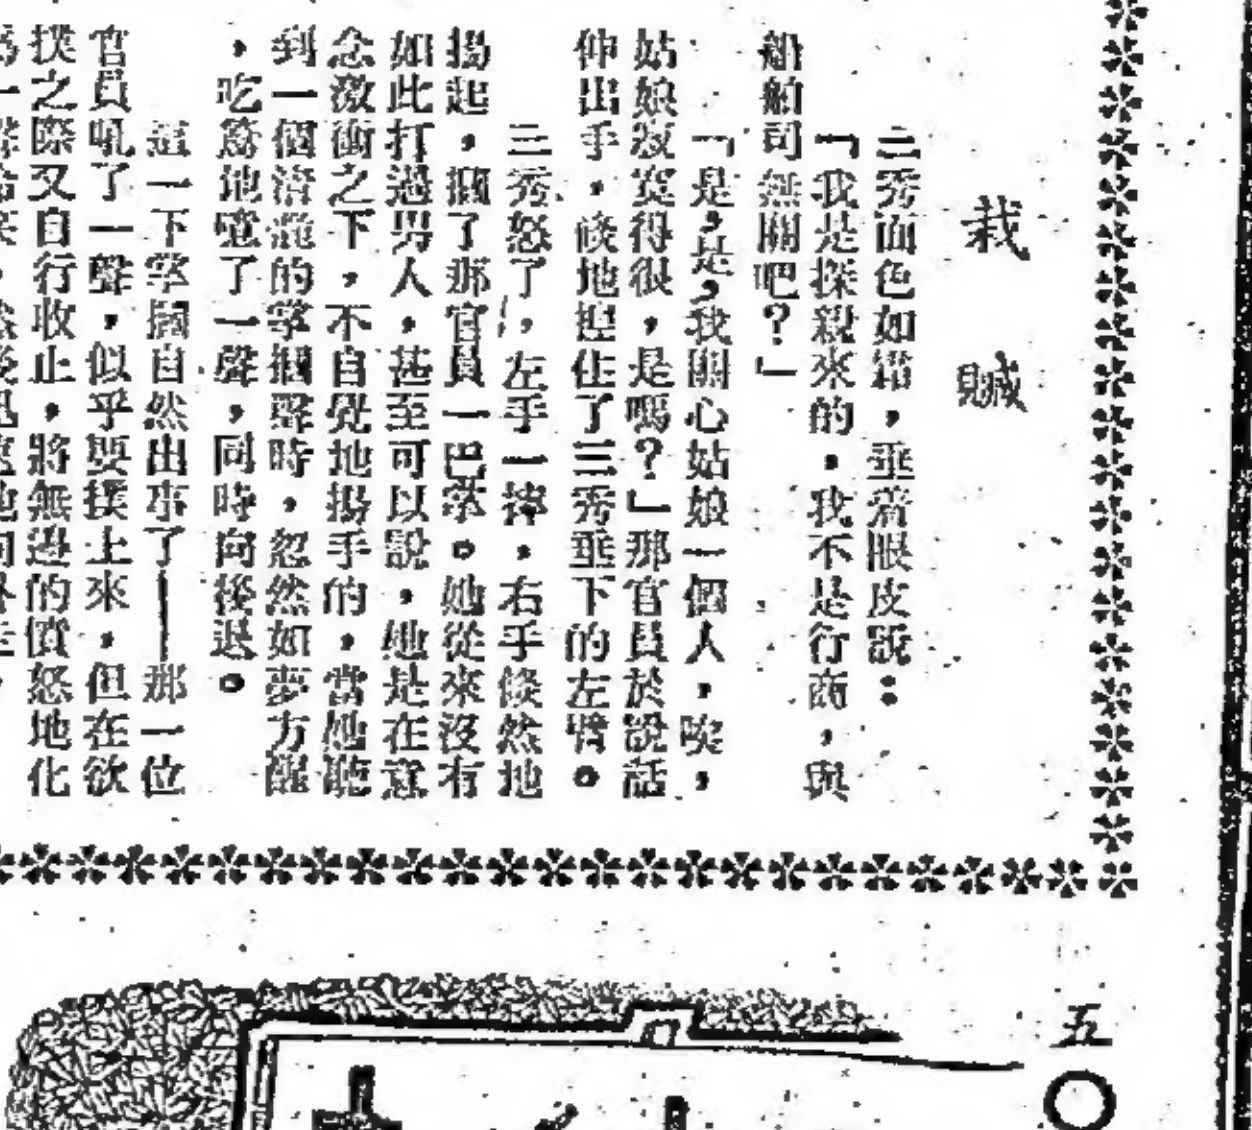 栽贓
三秀面色如霜，垂着眼皮說：
「我是探親來的，我不是行商，與
船舶司無關吧？」
「是，是，我關心姑娘一個人，唉，
姑娘寂寞得很，是嗎？」那官員於說話
伸出手，倏地捏住了三秀垂下的左臂。
三秀怒了，左手一摔，右手倏然地
揚起，摑了那官員一巴掌。她從來沒有
如此打過男人，甚至可以說，她是在意
念激衝之下，不自覺地揚手的，當她聽
到一個清脆的掌摑聲時，忽然如夢方醒
，吃驚地噫了一聲，同時向後退。
這一下掌摑自然出事了——那一位
官員吼了一聲，似乎要撲上來，但在欲
撲之際又自行收止，將無邊的憤怒地化
五〇